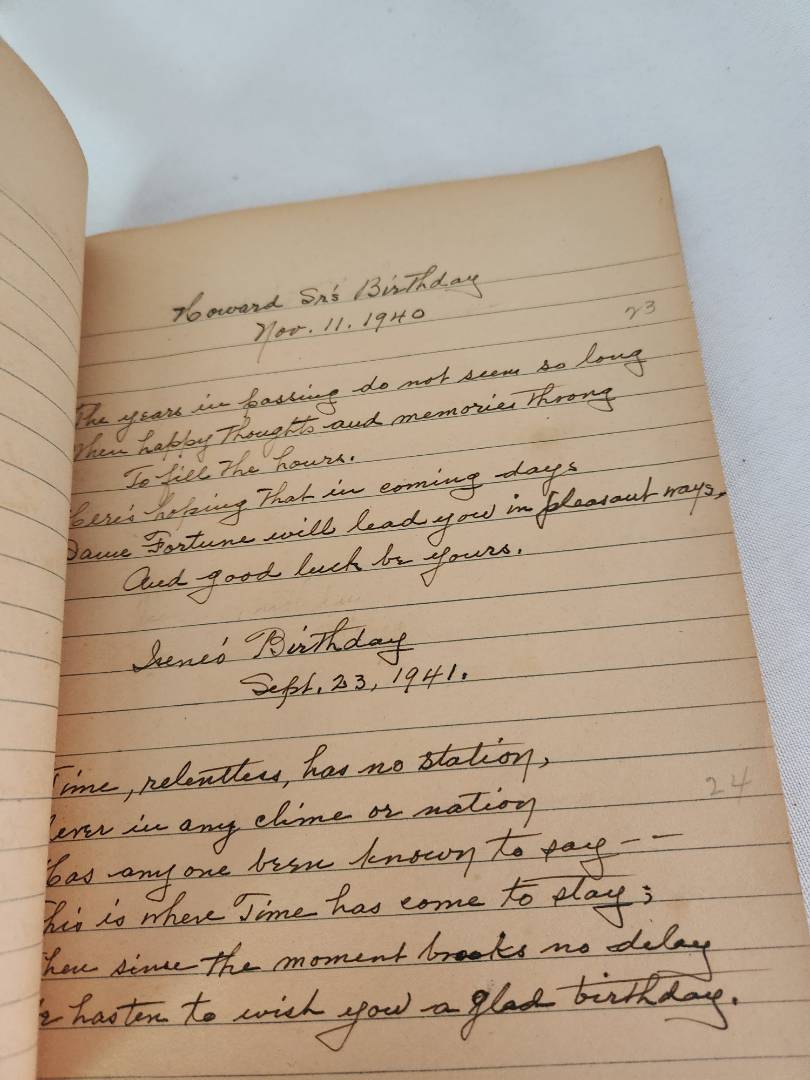 Howard Sr's Birthday
Nov. 11. 1940
23
The years in passing do not seem so long
When happy thoughts and memories throng
To fill the hours.
Here's hoping that in coming days
Dame Fortune will lead you in pleasant ways,
And good luck be yours.
Irene's Birthday
Sept. 23, 1941.
24
Time, relentless, has no station,
Never in any clime or nation
Has anyone been known to say--
This is where Time has come to stay;
Then since the moment brooks no delay
We hasten to wish you a glad birthday.